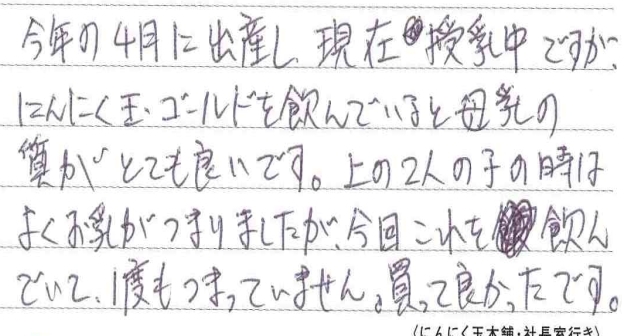 今年の4月に出産し、現在授乳中ですが、
にんにく玉ゴールドを飲んでいると母乳の
質がとても良いです。上の2人の子の時は
よくお乳がつまりましたが、今回これを飲ん
でいて、1度もつまっていません。買って良かったです。
(にんにく玉本舗・社長室行き)